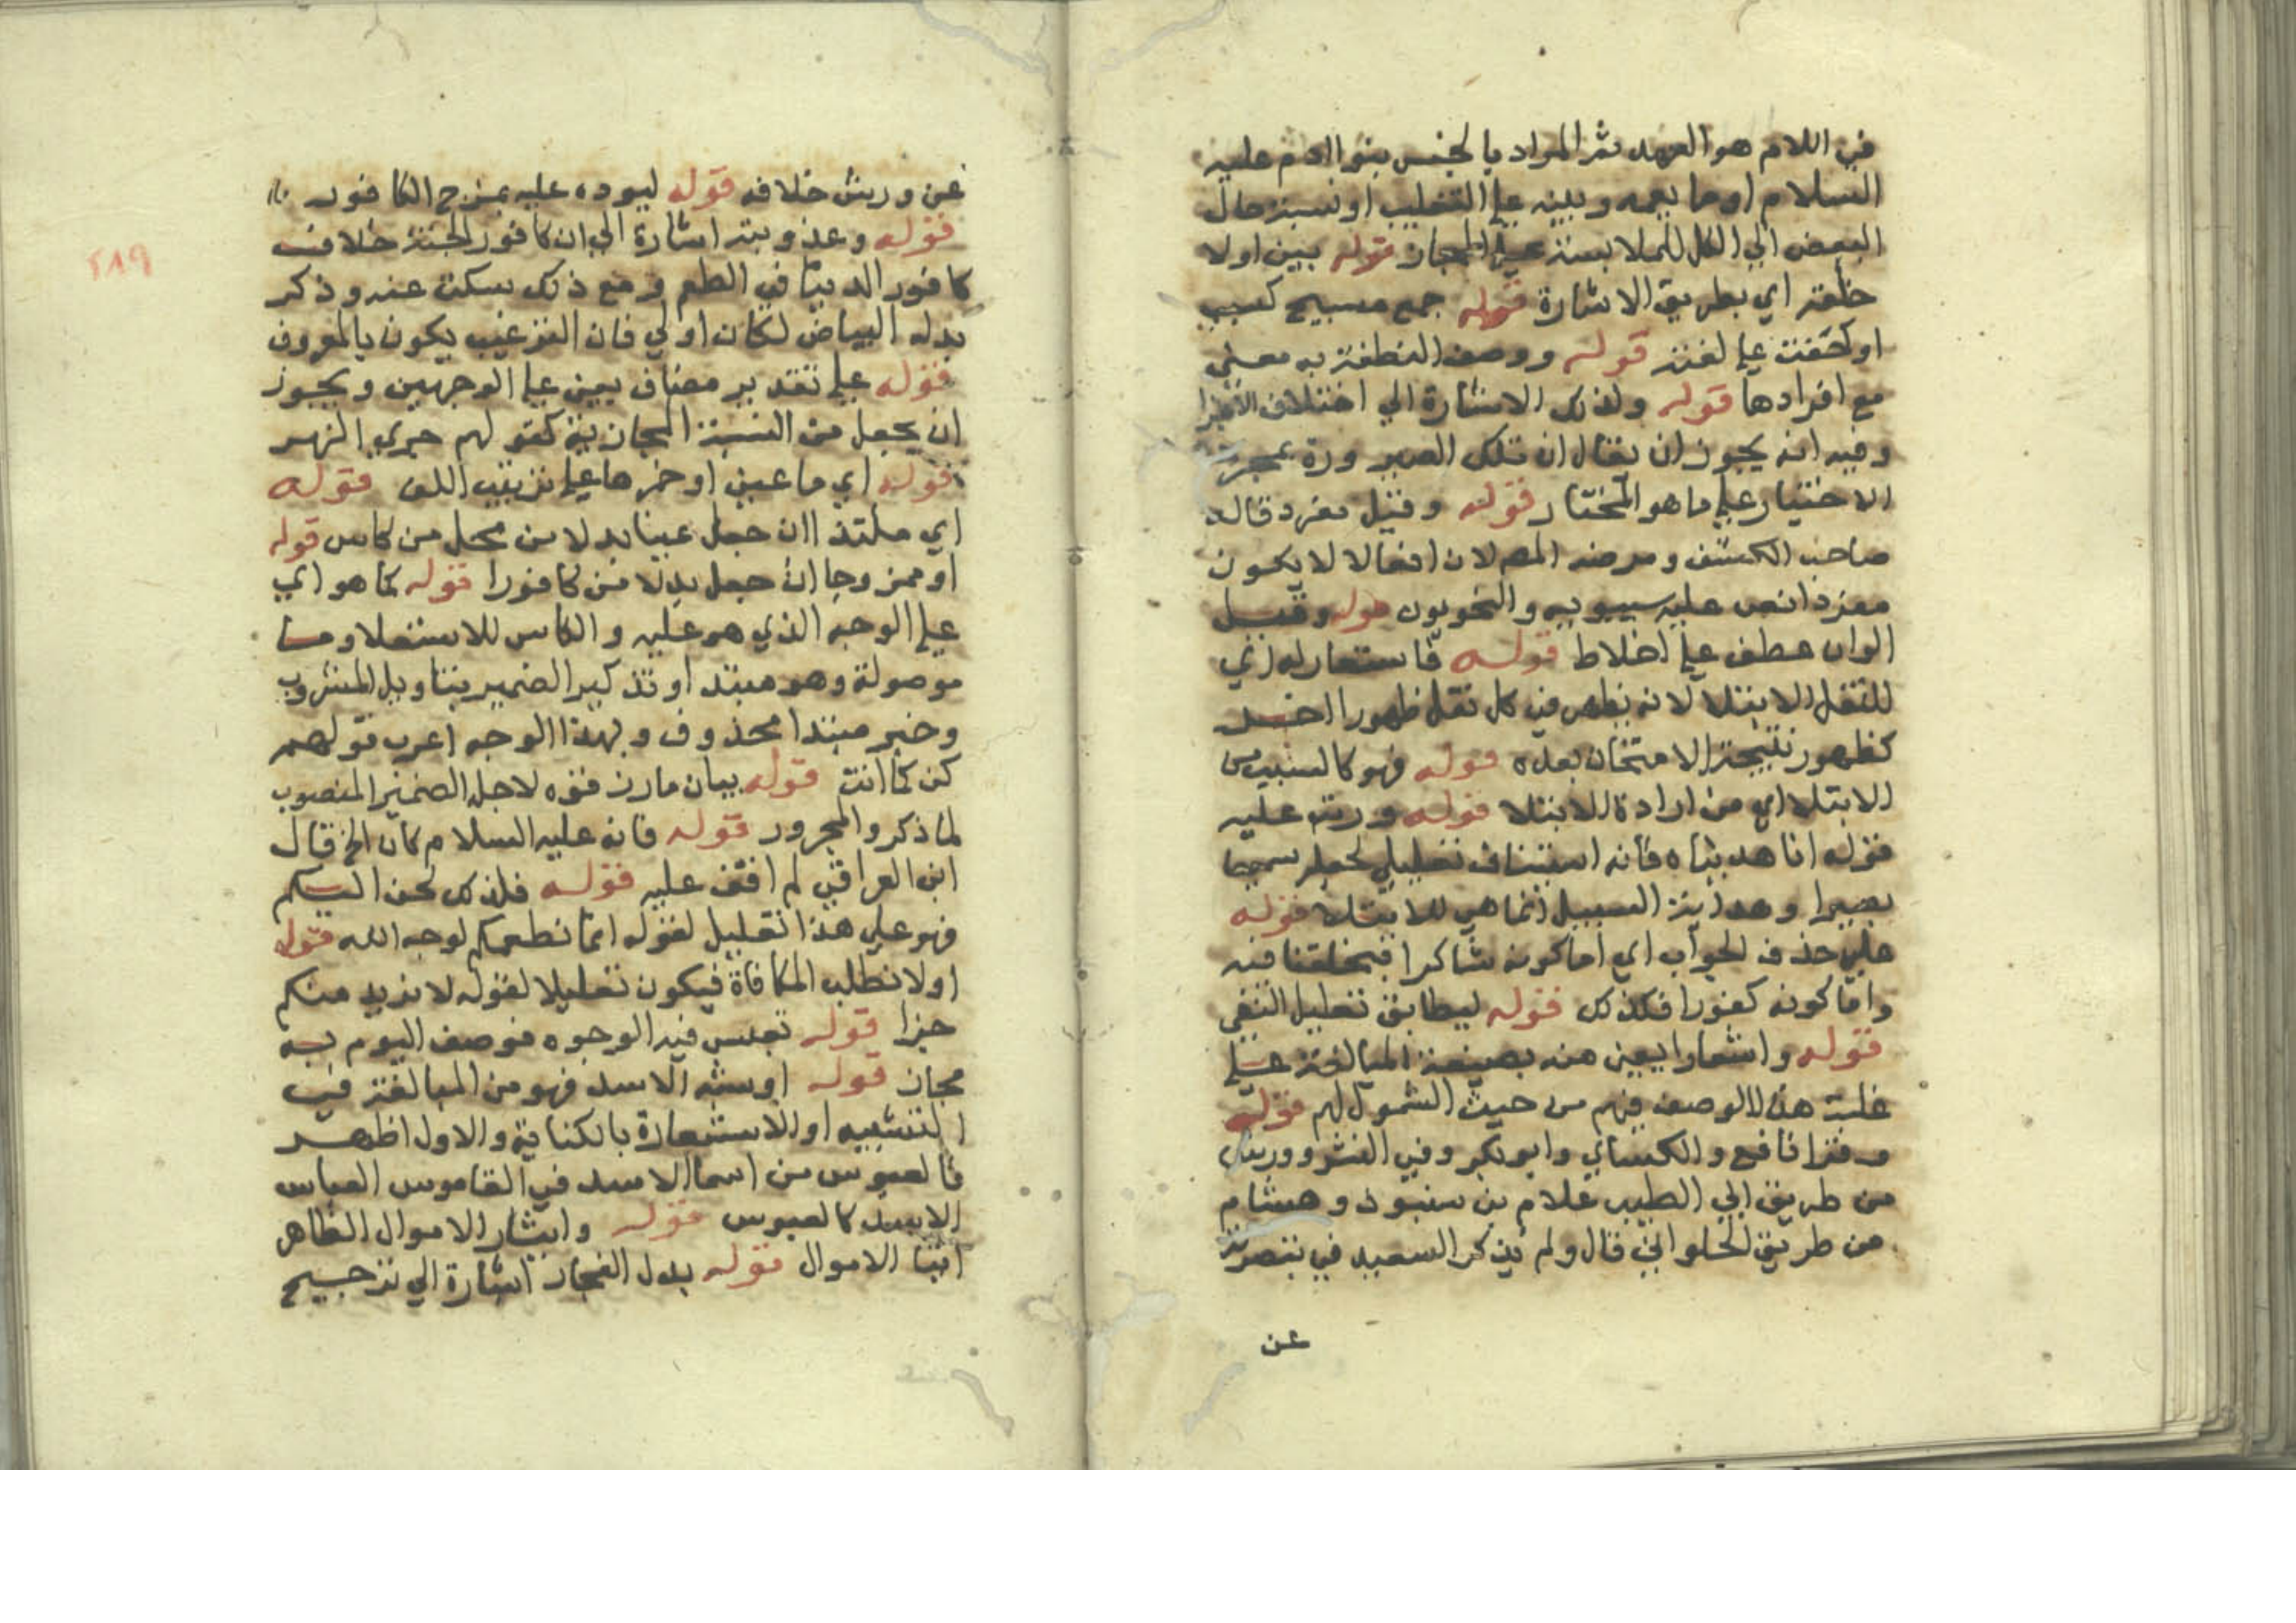 في اللام هو العهد ثم المراد بالجنس بنو ادم عليه
السلام او ما يعمه وبينه علي التغليب او نسبة حال
البعض الي الكل للملابسة علي المجاز قوله بين اولا
خلقه اي بطريق الاشارة قوله جمع مسيح كسبب
او ككتف علي لغة قوله ووصف النطفة به معني
مع افرادها قوله ولذلك الاشارة الي اختلاف الاجزا
وفيه انه يجوز ان يقال ان تلك الصيرورة بمجرد
الاختيار علي ما هو المختار قوله وقيل مفرد قاله
صاحب الكشف ومرضه المص لان افعالا لا يكون
مفردا نص عليه سيبويه والنحويون قوله وقيل
الوان عطف علي اخلاط قوله فاستعار له اي
للنقل الابتلا لانه يظهر في كل نقل ظهورا اخر
كظهور نتيجة الامتحان بعده قوله فهو كالسبب من
الابتلا اي من ارادة الابتلا قوله ورتب عليه
قوله انا هديناه فانه استيناف تعليل لجعله سميعا
بصيرا وهداية السبيل انما هي للابتلا قوله
علي حذف الجواب اي اما كونه شاكرا فبخلقنا فيه
واما كونه كفورا فكذلك قوله ليطابق تعليل النفي
قوله واشعارا يعين منه بصيغة المبالغة علي
غلبة هذا الوصف فيهم من حيث الشمول لهم قوله
وقرا نافع والكسائي وابو بكر وفي النشر وورش
من طريق ابي الطيب غلام بن سنبوذ وهشام
من طريق الحلواني قال ولم يذكر السعيد في تبصرته
عن
عن وريش خلافه قوله ليوده عليه بمزج الكافور
قوله وعذوبته اشارة الي ان كافور الجنة خلاف
كافور الدنيا في الطعم ومع ذلك سكت عنه وذكر
بدله البياض لكان اولي فان الترغيب يكون بالمعروف
قوله علي تقدير مضاف يعين علي الوجهين ويجوز
ان يجعل من النسبة المجازية كقولهم جري النهر
قوله اي ما عين او خمرها علي ترتيب اللف قوله
اي ملتذا ان جعل عينا بدلا من محل من كاس قوله
او ممزوجا ان جعل بدلا من كافورا قوله كما هو اي
علي الوجه الذي هو عليه والكاس للاستعلا وما
موصولة وهو مبتدا وتذكير الضمير بتاويل المشروب
وخبر مبتدا محذوف وبهذا الوجه اعرب قولهم
كن كما انت قوله بيان ما رزقوه لاجل الضمير المنصوب
لما ذكر والمجرور قوله فانه عليه السلام كان الخ قال
ابن العراقي لم اقف عليه قوله فلذلك نحن اليكم
فهو علي هذا تعليل لقوله انما نطعمكم لوجه الله قوله
او لا نطلب المكافاة فيكون تعليلا لقوله لا نريد منكم
جزا قوله تعبس فيه الوجوه فوصف اليوم به
مجاز قوله او يشبه الاسد فهو من المبالغة في
التشبيه او الاستعارة بالكناية والاول اظهر
فالعبوس من اسما الاسد في القاموس العباس
الاسد كالعبوس قوله وايثار الاموال الظاهر
اقتنا الاموال قوله بدل الفجار اشارة الي ترجيح
٢٨٩